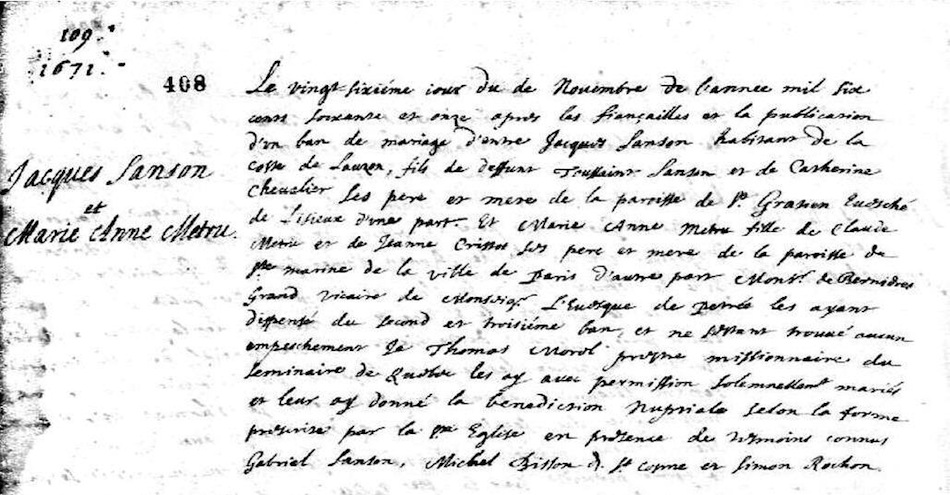 109.
1671.
408
Jacques Sanson
et
Marie Anne Metru.
Le vingt sixiéme iour du de Novembre de l'annee mil six
cent soixante et onze apres les fiançailles et la publication
d'un ban de mariage d'entre Jacques Sanson habitant de la
coste de Lauzon, fils de deffunt Toussaint Sanson et de Catherine
Chevalier ses pere et mere de la paroisse de St. Gratien Euesché
de Lisieux d'une part. Et Marie Anne Metru fille de Claude
Metru et de Jeanne Crissot ses pere et mere de la paroisse de
ste marine de la ville de Paris d'autre part Monsr. de Bernieres
Grand vicaire de Monseigr. L'Euesque de Petrée les ayant
dispensé du second et troisiéme ban, et ne s'estant trouué aucun
empeschement Je Thomas Morel prestre missionnaire du
seminaire de Quebec les ay avec permission solemnellemt mariés
et leur ay donné la benediction Nuptiale selon la forme
prescrite par la Ste Eglise en présence de temoins connus
Gabriel Sanson, Michel Bisson d. St cosme et Simon Rochon.